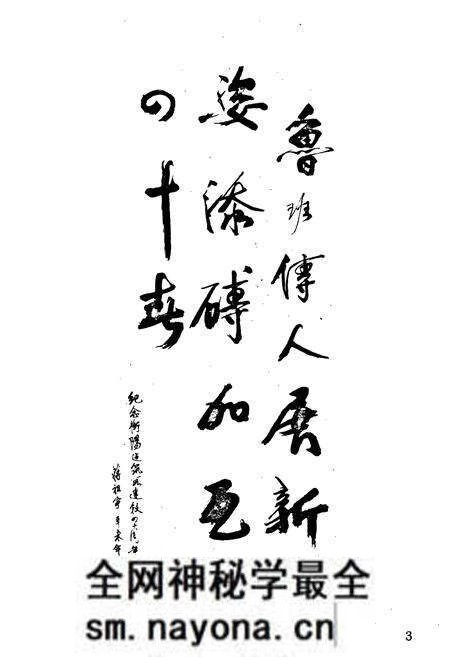 魯班傳人展新
姿添磚加瓦
四十春
紀念衡陽建筑
蔣祖 辛未年
全网神秘学最全
sm.nayona.cn
3